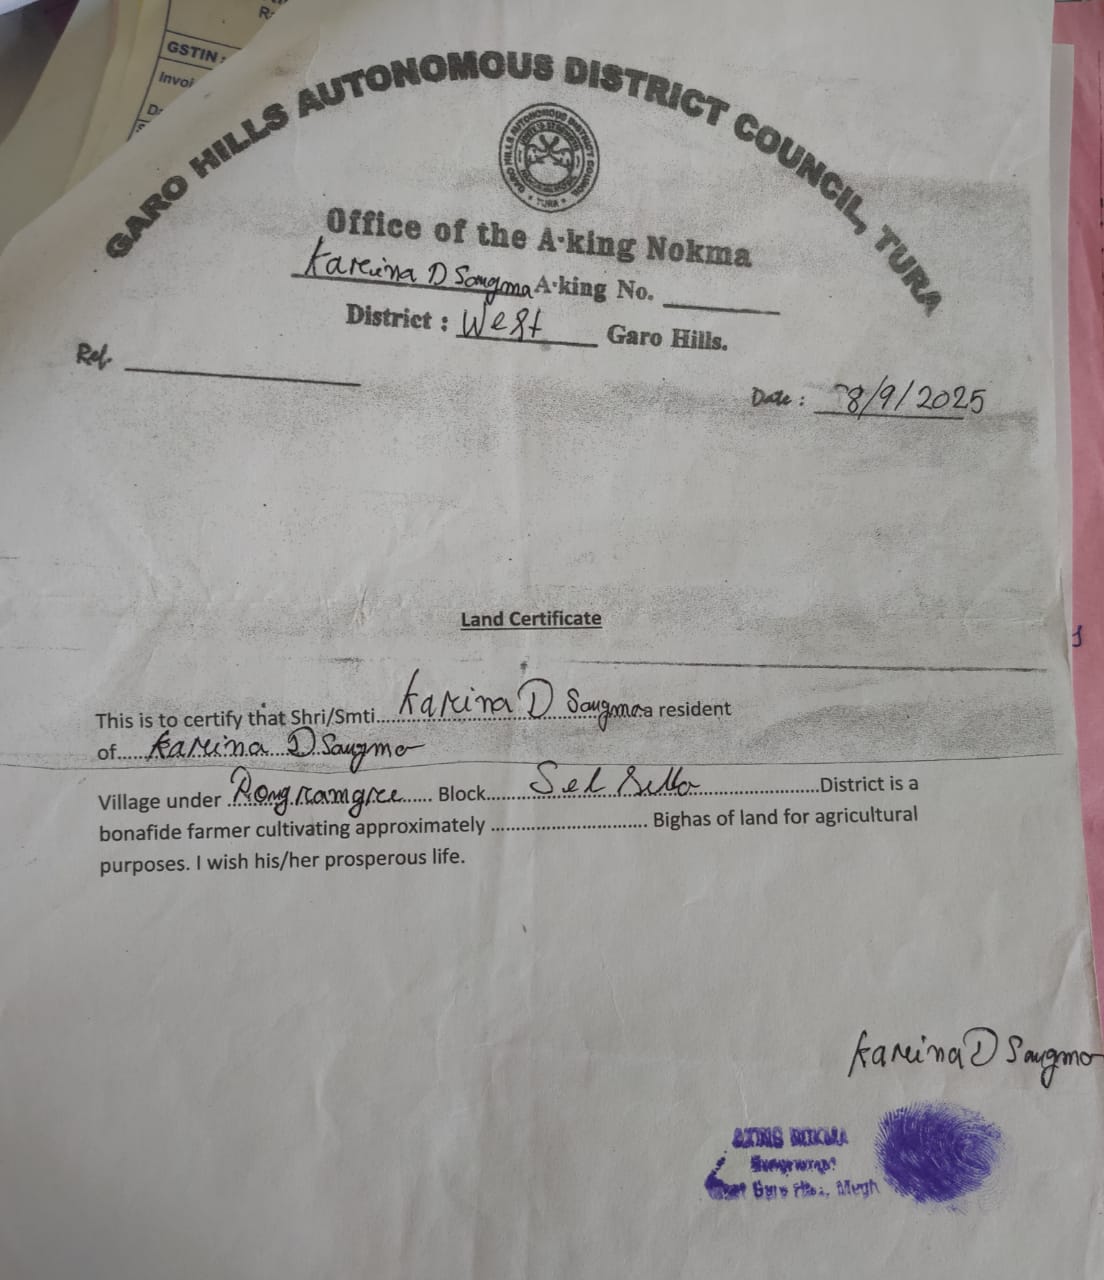 GSTIN :
Invoi
GARO HILLS AUTONOMOUS DISTRICT COUNCIL, TURA
Office of the A·king Nokma
Kareina D Sangma A·king No. ________
District : West Garo Hills.
Ref. ________
Date : 8/9/2025
Land Certificate
This is to certify that Shri/Smti....Karina D Sangma a resident
of......Kareina D Sangma
Village under Rongramgree...... Block......Sel Sella......District is a
bonafide farmer cultivating approximately .............................. Bighas of land for agricultural
purposes. I wish his/her prosperous life.
Kareina D Sangma
AKING NOKMA
Garo Hills, Megh